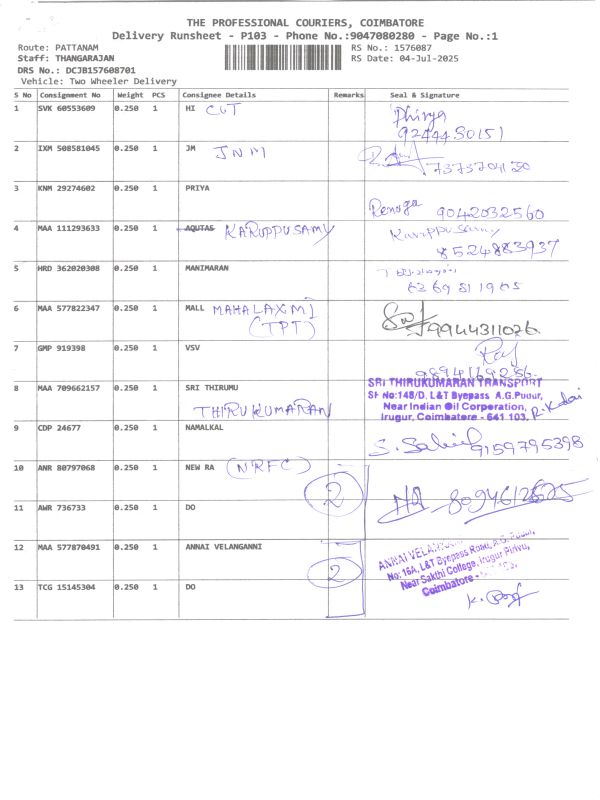 THE PROFESSIONAL COURIERS, COIMBATORE
Delivery Runsheet - P103 - Phone No.:9047080280 - Page No.:1
Route: PATTANAM RS No.: 1576087
Staff: THANGARAJAN RS Date: 04-Jul-2025
DRS No.: DCJB157608701
Vehicle: Two Wheeler Delivery
S No Consignment No Weight PCS Consignee Details Remarks Seal & Signature
1 SVK 60553609 0.250 1 HI CGT
9244450151
2 IXM 508581045 0.250 1 JM JNM
7373704130
3 KNM 29274602 0.250 1 PRIYA
Renuga 9042032560
4 MAA 111293633 0.250 1 AQUTAS KARUPPUSAMY Karuppusamy
8524883937
5 HRD 362020308 0.250 1 MANIMARAN
6 MAA 577822347 0.250 1 MALL MAHALAXMI
(TPT) 9944311026
7 GMP 919398 0.250 1 VSV Raj
8 MAA 709662157 0.250 1 SRI THIRUMU
THIRUKUMARAN
SRI THIRUKUMARAN TRANSPORT
Sf No:148/D, L&T Byepass A.G.Pudur,
Near Indian Oil Corporation,
Irugur, Coimbatore - 641 103.
9 CDP 24677 0.250 1 NAMALKAL
9159795398
10 ANR 80797068 0.250 1 NEW RA (NRFC) 2
11 AWR 736733 0.250 1 DO
12 MAA 577870491 0.250 1 ANNAI VELANGANNI 2
No: 16A, L&T Byepass Road, A.G. Pudur,
Near Sakthi College, Irugur Pirivu,
Coimbatore -
13 TCG 15145304 0.250 1 DO